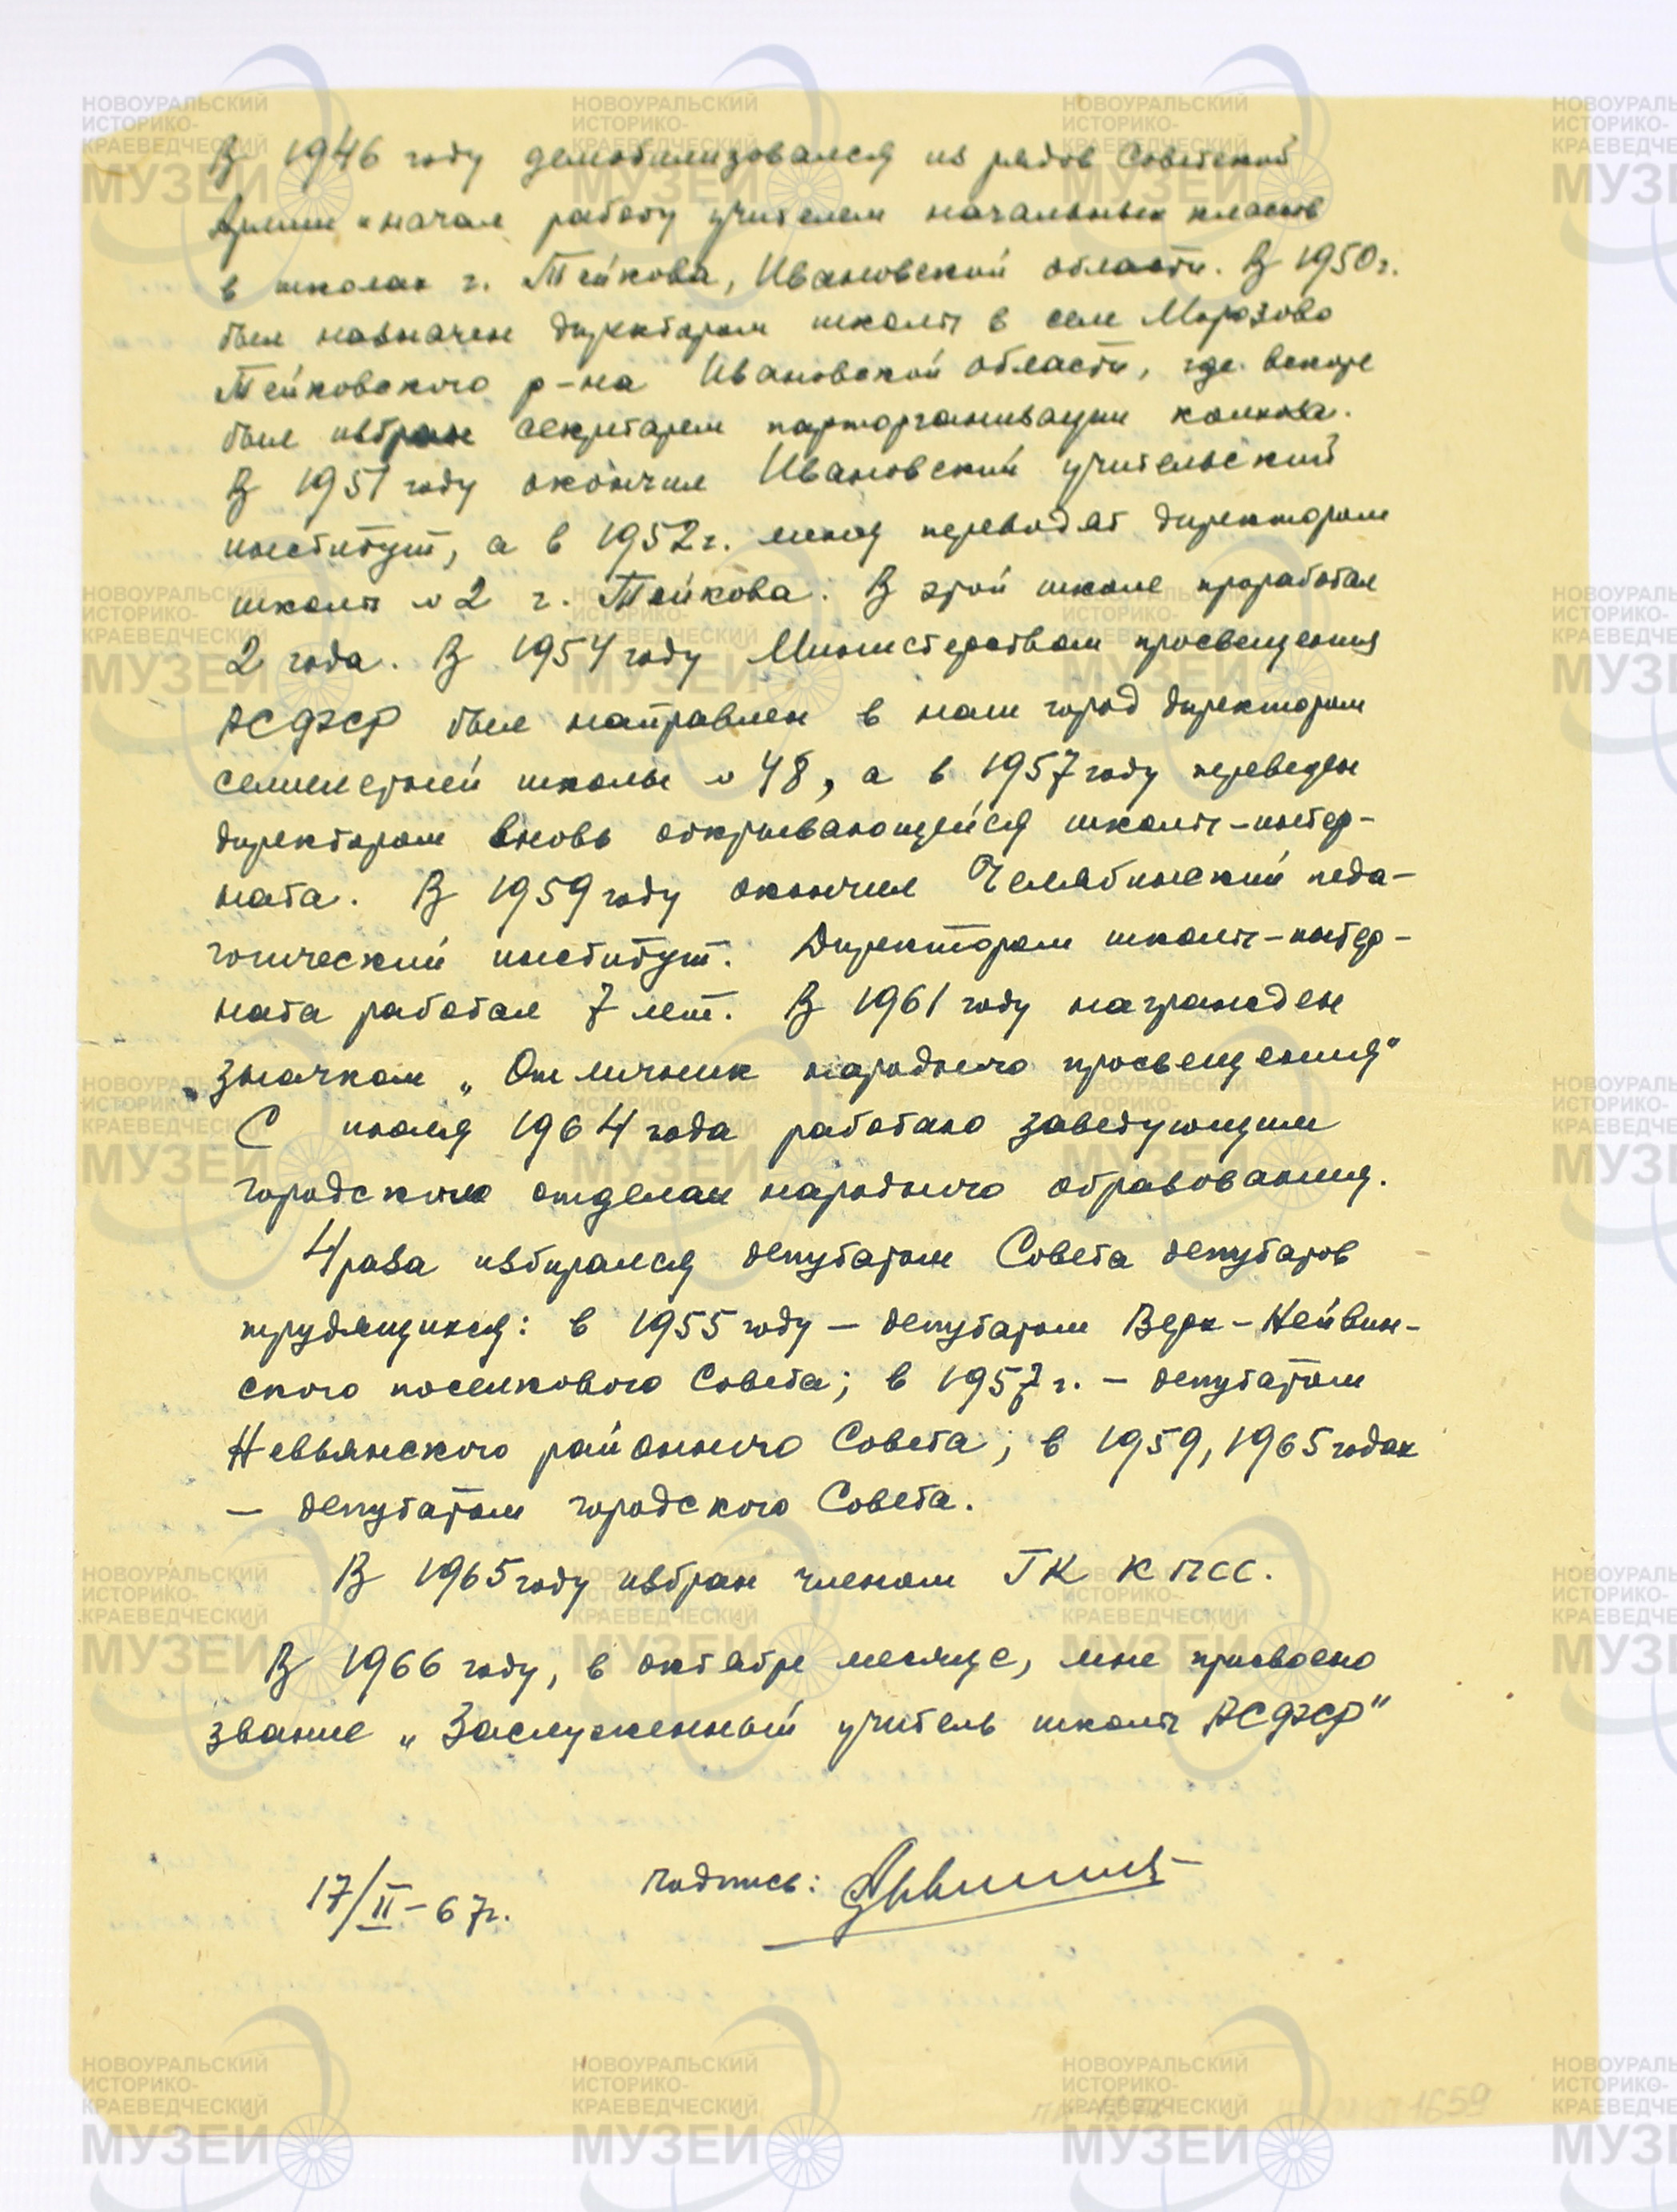 В 1946 году демобилизовался из рядов Советской
Армии и начал работу учителем начальных классов
в школах г. Тейкова, Ивановской области. В 1950 г.
был назначен директором школы в селе Морозово
Тейковского р-на Ивановской области, где вскоре
был избран секретарем парторганизации колхоза.
В 1951 году окончил Ивановский учительский
институт, а в 1952 г. меня переводят директором
школы № 2 г. Тейкова. В этой школе проработал
2 года. В 1954 году Министерством просвещения
РСФСР был направлен в наш город директором
семилетней школы № 48, а в 1957 году переведен
директором вновь открывающейся школы-интер-
ната. В 1959 году окончил Челябинский педа-
гогический институт. Директором школы-интер-
ната работал 7 лет. В 1961 году награжден
значком „Отличник народного просвещения“
С июля 1964 года работаю заведующим
городским отделом народного образования.
4 раза избирался депутатом Совета депутатов
трудящихся: в 1955 году – депутатом Верх-Нейвин-
ского поселкового Совета; в 1957 г. – депутатом
Невьянского районного Совета; в 1959, 1965 годах
– депутатом городского Совета.
В 1965 году избран членом ГК КПСС.
В 1966 году, в октябре месяце, мне присвоено
звание „Заслуженный учитель школы РСФСР“
17/II – 67 г. подпись:
1659
НОВОУРАЛЬСКИЙ
ИСТОРИКО-
КРАЕВЕДЧЕСКИЙ
МУЗЕЙ